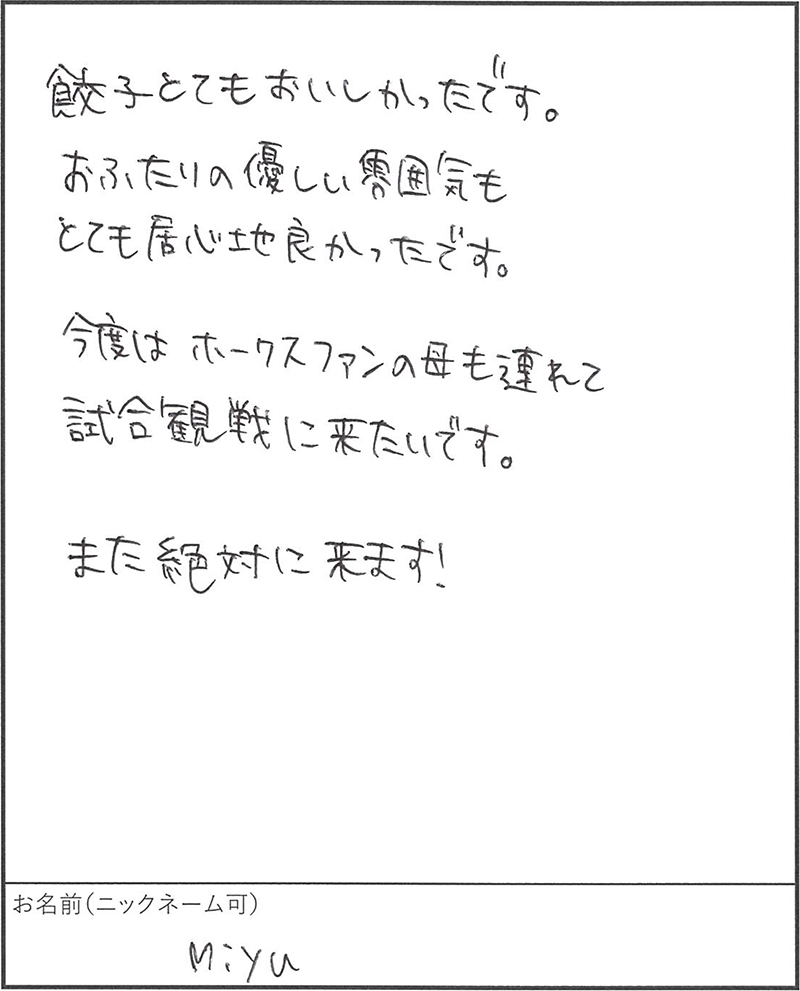 餃子とてもおいしかったです。
おふたりの優しい雰囲気も
とても居心地良かったです。
今度はホークスファンの母も連れて
試合観戦に来たいです。
また絶対に来ます!
お名前(ニックネーム可)
Miyu